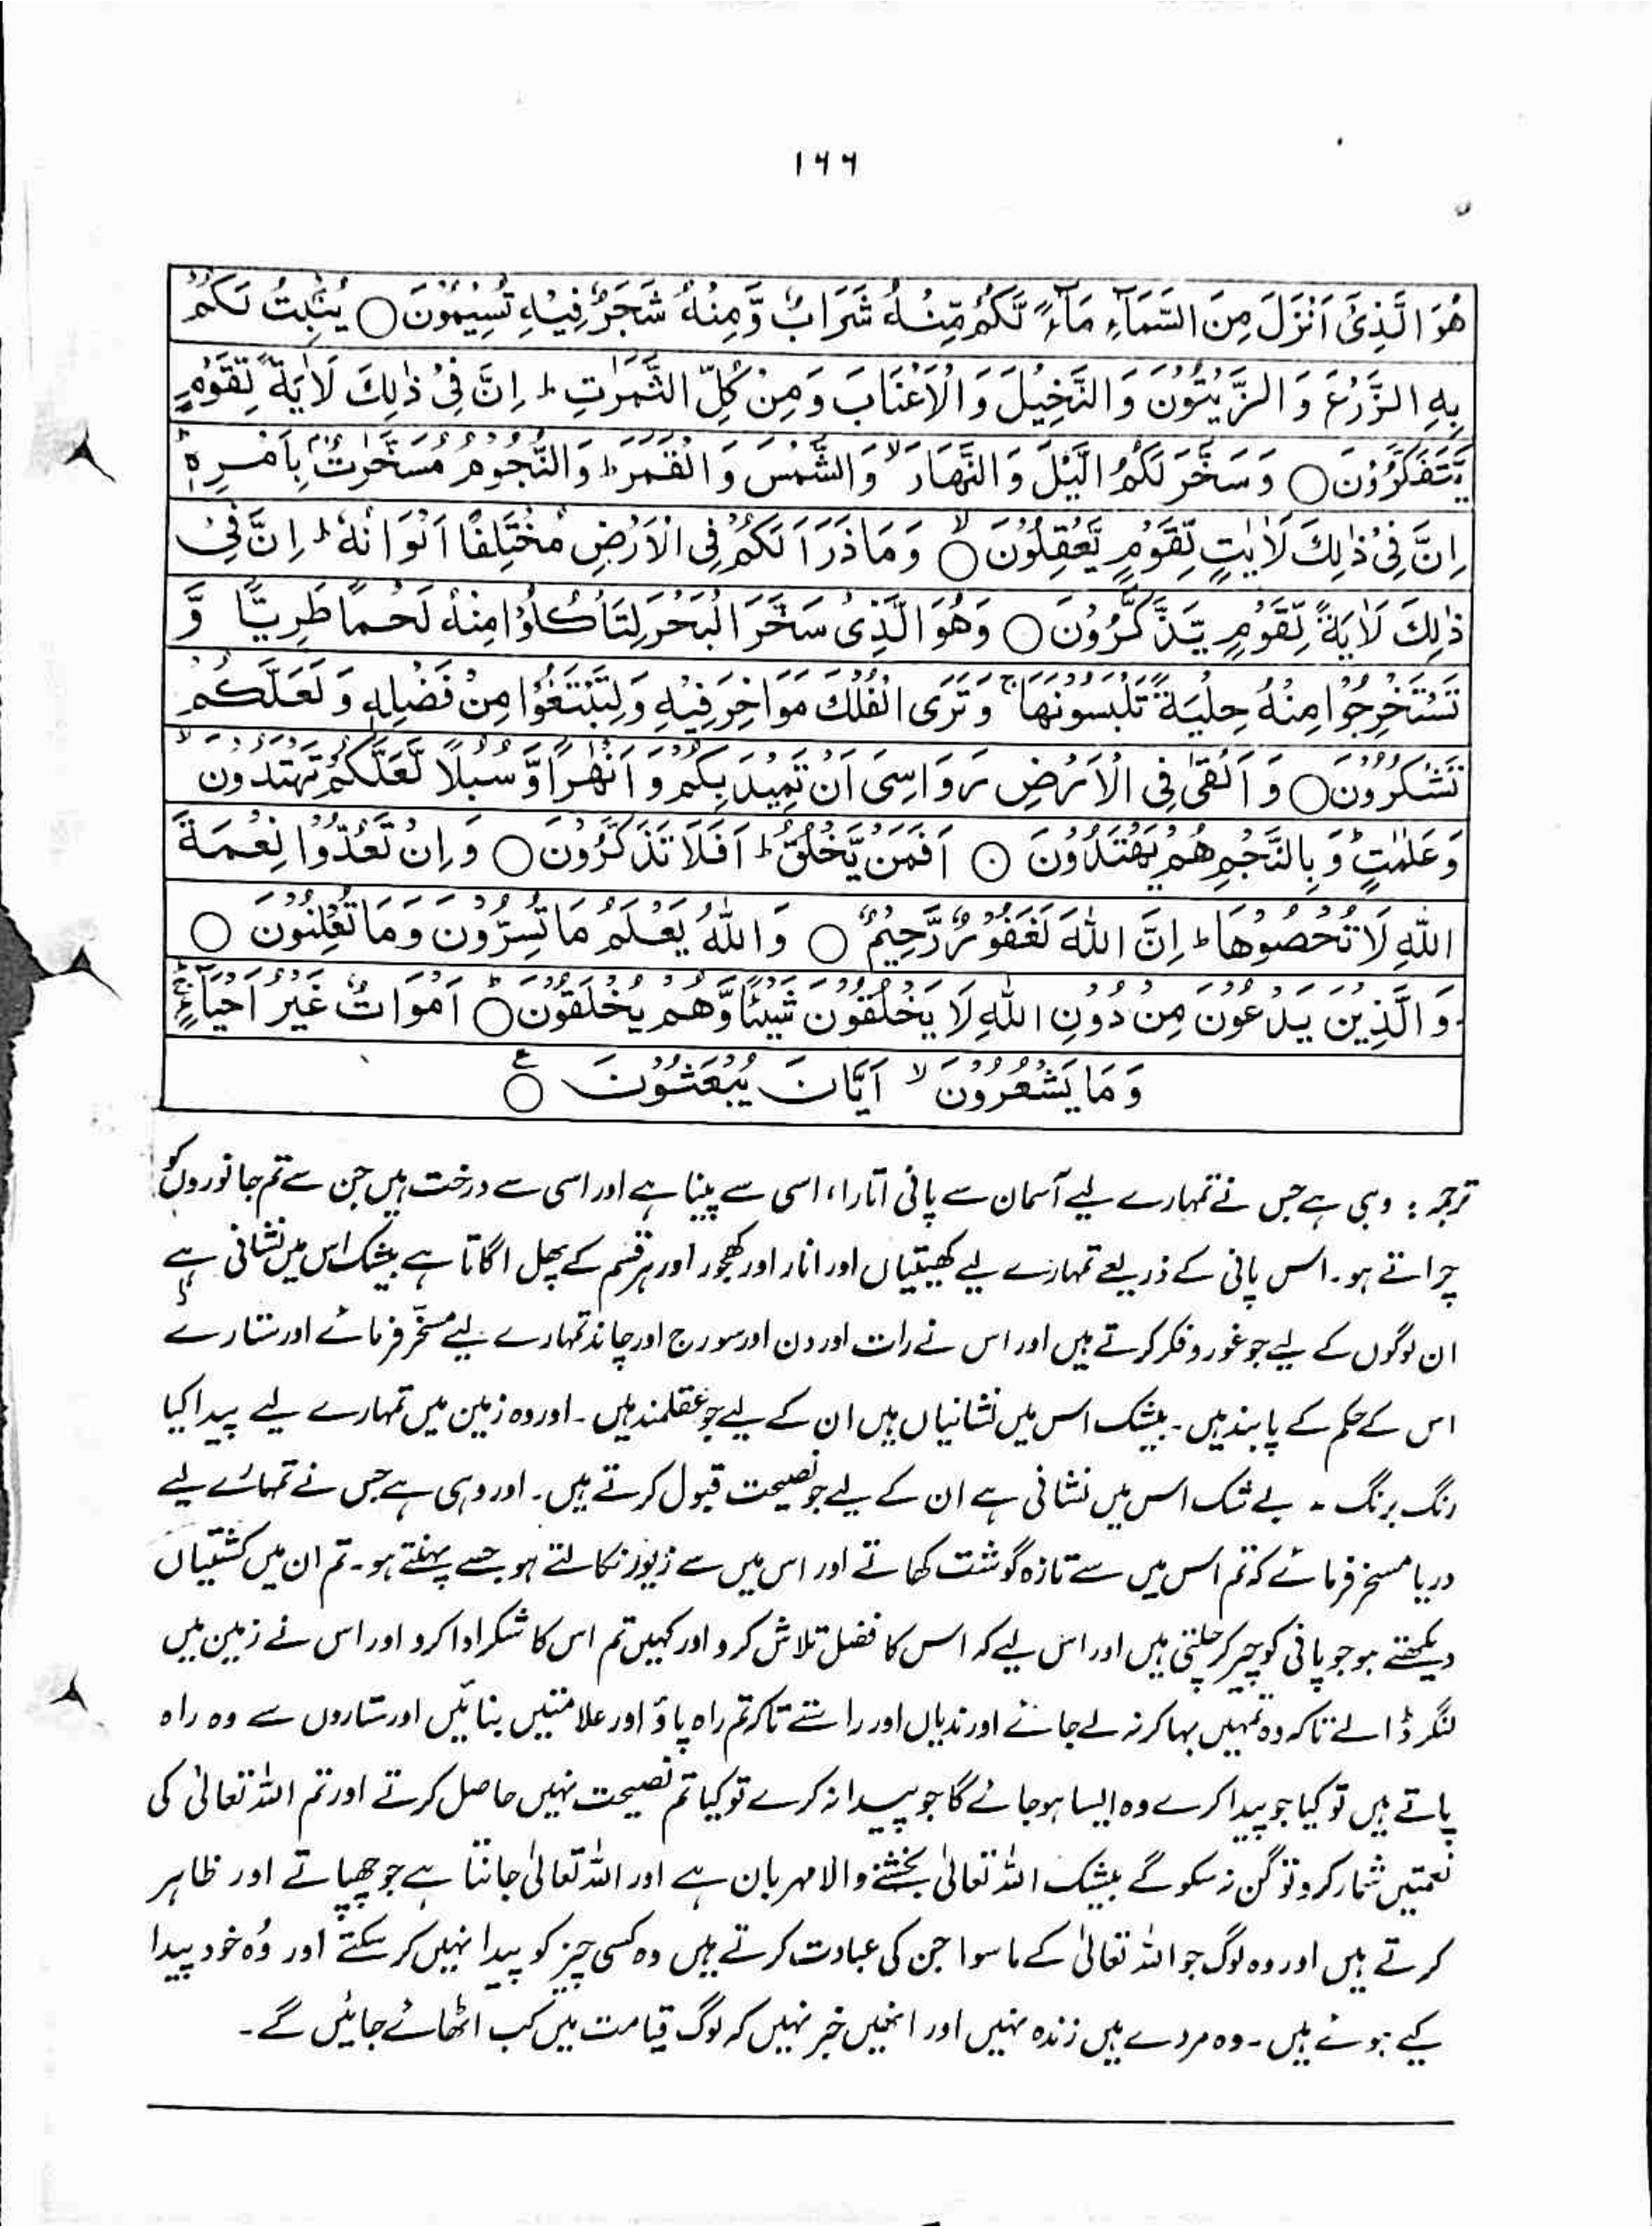 ۱۶۶
هُوَ الَّذِیْٓ اَنْزَلَ مِنَ السَّمَآءِ مَآءً لَّكُمْ مِّنْهُ شَرَابٌ وَّمِنْهُ شَجَرٌ فِیْهِ تُسِیْمُوْنَ ○ یُنْۢبِتُ لَكُمْ
بِهِ الزَّرْعَ وَ الزَّیْتُوْنَ وَ النَّخِیْلَ وَ الْاَعْنَابَ وَ مِنْ كُلِّ الثَّمَرٰتِ ؕ اِنَّ فِیْ ذٰلِكَ لَاٰیَةً لِّقَوْمٍ
یَّتَفَكَّرُوْنَ ○ وَ سَخَّرَ لَكُمُ الَّیْلَ وَ النَّهَارَ ۙ وَ الشَّمْسَ وَ الْقَمَرَ ؕ وَ النُّجُوْمُ مُسَخَّرٰتٌۢ بِاَمْرِهٖ ؕ
اِنَّ فِیْ ذٰلِكَ لَاٰیٰتٍ لِّقَوْمٍ یَّعْقِلُوْنَ ○ۙ وَ مَا ذَرَاَ لَكُمْ فِی الْاَرْضِ مُخْتَلِفًا اَلْوَانُهٗ ؕ اِنَّ فِیْ
ذٰلِكَ لَاٰیَةً لِّقَوْمٍ یَّذَّكَّرُوْنَ ○ وَ هُوَ الَّذِیْ سَخَّرَ الْبَحْرَ لِتَاْكُلُوْا مِنْهُ لَحْمًا طَرِیًّا وَّ
تَسْتَخْرِجُوْا مِنْهُ حِلْیَةً تَلْبَسُوْنَهَا ۚ وَ تَرَی الْفُلْكَ مَوَاخِرَ فِیْهِ وَ لِتَبْتَغُوْا مِنْ فَضْلِهٖ وَ لَعَلَّكُمْ
تَشْكُرُوْنَ ○ وَ اَلْقٰی فِی الْاَرْضِ رَوَاسِیَ اَنْ تَمِیْدَ بِكُمْ وَ اَنْهٰرًا وَّ سُبُلًا لَّعَلَّكُمْ تَهْتَدُوْنَ ۙ
وَ عَلٰمٰتٍ ؕ وَ بِالنَّجْمِ هُمْ یَهْتَدُوْنَ ○ اَفَمَنْ یَّخْلُقُ ؕ اَفَلَا تَذَكَّرُوْنَ ○ وَ اِنْ تَعُدُّوْا نِعْمَةَ
اللّٰهِ لَا تُحْصُوْهَا ؕ اِنَّ اللّٰهَ لَغَفُوْرٌ رَّحِیْمٌ ○ وَ اللّٰهُ یَعْلَمُ مَا تُسِرُّوْنَ وَ مَا تُعْلِنُوْنَ ○
وَ الَّذِیْنَ یَدْعُوْنَ مِنْ دُوْنِ اللّٰهِ لَا یَخْلُقُوْنَ شَیْئًا وَّ هُمْ یُخْلَقُوْنَ ○ؕ اَمْوَاتٌ غَیْرُ اَحْیَآءٍ ۚ
وَ مَا یَشْعُرُوْنَ ۙ اَیَّانَ یُبْعَثُوْنَ ○ع
ترجمہ : وہی ہے جس نے تمہارے لیے آسمان سے پانی اتارا، اسی سے پینا ہے اور اسی سے درخت ہیں جن سے تم جانوروں کو
چراتے ہو۔ اس پانی کے ذریعے تمہارے لیے کھیتیاں اور انار اور کھجور اور ہر قسم کے پھل اگاتا ہے بیشک اس میں نشانی ہے
ان لوگوں کے لیے جو غور و فکر کرتے ہیں اور اس نے رات اور دن اور سورج اور چاند تمہارے لیے مسخّر فرمائے اور ستارے
اس کے حکم کے پابند ہیں۔ بیشک اس میں نشانیاں ہیں ان کے لیے جو عقلمند ہیں۔ اور وہ زمین میں تمہارے لیے پیدا کیا
رنگ برنگ ۔ بے شک اس میں نشانی ہے ان کے لیے جو نصیحت قبول کرتے ہیں۔ اور وہی ہے جس نے تمہارے لیے
دریا مسخر فرمائے کہ تم اس میں سے تازہ گوشت کھاتے اور اس میں سے زیور نکالتے ہو جسے پہنتے ہو۔ تم ان میں کشتیاں
دیکھتے ہو جو پانی کو چیر کر چلتی ہیں اور اس لیے کہ اس کا فضل تلاش کرو اور کہیں تم اس کا شکر ادا کرو اور اس نے زمین میں
لنگر ڈالے تاکہ وہ تمہیں بہا کر نہ لے جائے اور ندیاں اور راستے تاکہ تم راہ پاؤ اور علامتیں بنائیں اور ستاروں سے وہ راہ
پاتے ہیں تو کیا جو پیدا کرے وہ ایسا ہو جائے گا جو پیدا نہ کرے تو کیا تم نصیحت نہیں حاصل کرتے اور تم اللہ تعالیٰ کی
نعمتیں شمار کرو تو گن نہ سکو گے بیشک اللہ تعالیٰ بخشنے والا مہربان ہے اور اللہ تعالیٰ جانتا ہے جو چھپاتے اور ظاہر
کرتے ہیں اور وہ لوگ جو اللہ تعالیٰ کے ماسوا جن کی عبادت کرتے ہیں وہ کسی چیز کو پیدا نہیں کر سکتے اور وُہ خود پیدا
کیے ہوئے ہیں۔ وہ مردے ہیں زندہ نہیں اور انھیں خبر نہیں کہ لوگ قیامت میں کب اٹھائے جائیں گے۔